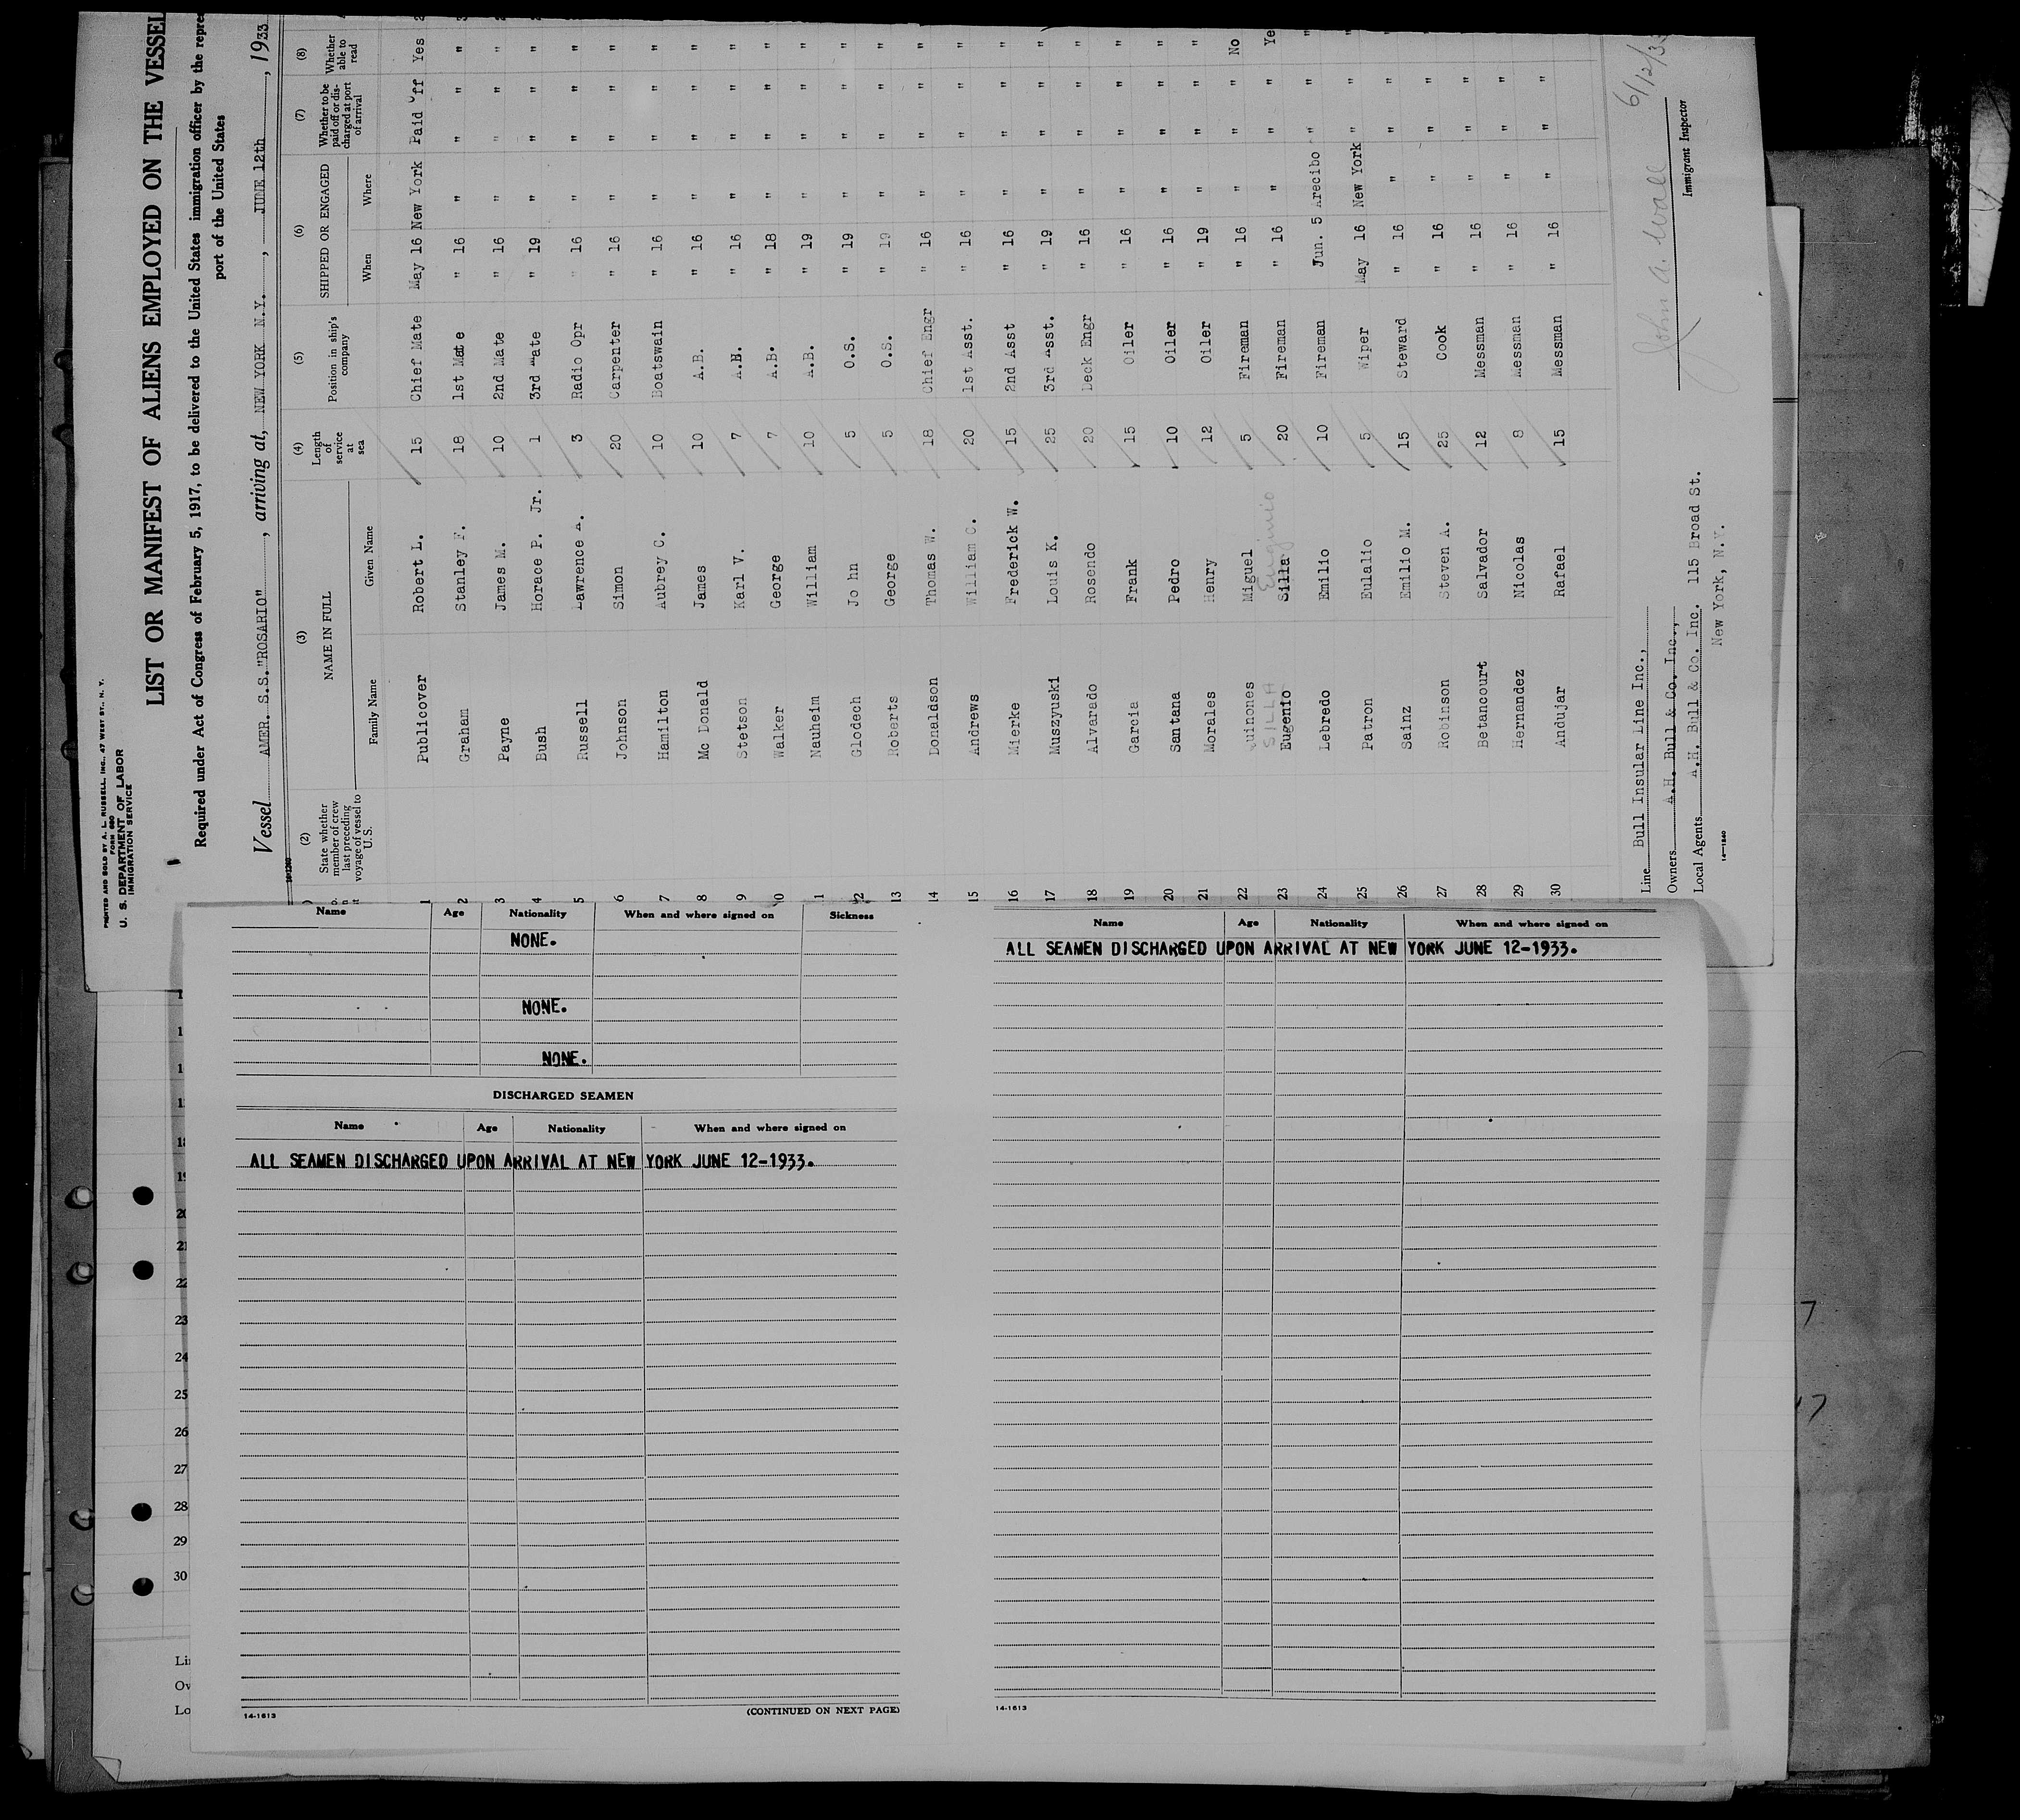 PRINTED AND SOLD BY A. L. RUSSELL, INC., 47 WEST ST., N. Y.
FORM 680
U. S. DEPARTMENT OF LABOR
IMMIGRATION SERVICE
LIST OR MANIFEST OF ALIENS EMPLOYED ON THE VESSEL
Required under Act of Congress of February 5, 1917, to be delivered to the United States immigration officer by the
port of the United States
Vessel AMER. S.S."ROSARIO", arriving at, NEW YORK N.Y., JUNE 12th, 1933
(2) (3) (4) (5) (6) (7) (8)
State whether member of crew last preceding voyage of vessel to U.S. NAME IN FULL Length of service at sea Position in ship's company SHIPPED OR ENGAGED Whether to be paid off or discharged at port of arrival Whether able to read
Family Name Given Name When Where
1 Publicover Robert L. 15 Chief Mate May 16 New York Paid Off Yes
2 Graham Stanley F. 18 1st Mate " 16 " " " "
3 Payne James M. 10 2nd Mate " 16 " " " "
4 Bush Horace P. Jr. 1 3rd Mate " 19 " " " "
5 Russell Lawrence A. 3 Radio Opr " 16 " " " "
6 Johnson Simon 20 Carpenter " 16 " " " "
7 Hamilton Aubrey C. 10 Boatswain " 16 " " " "
8 Mc Donald James 10 A.B. " 16 " " " "
9 Stetson Karl V. 7 A.B. " 16 " " " "
10 Walker George 7 A.B. " 18 " " " "
1 Nauheim William 10 A.B. " 19 " " " "
12 Glodech Jo hn 5 O.S. " 19 " " " "
13 Roberts George 5 O.S. " 19 " " " "
14 Donaldson Thomas W. 18 Chief Engr " 16 " " " "
15 Andrews William C. 20 1st Asst. " 16 " " " "
16 Mierke Frederick W. 15 2nd Asst " 16 " " " "
17 Muszyuski Louis K. 25 3rd Asst. " 19 " " " "
18 Alvarado Rosendo 20 Deck Engr " 16 " " " "
19 Garcia Frank 15 Oiler " 16 " " " "
20 Santana Pedro 10 Oiler " 16 " " " "
21 Morales Henry 12 Oiler " 19 " " " "
22 Quinones Miguel 5 Fireman " 16 " " " No
SILLA Euginio
23 Eugenio Silla 20 Fireman " 16 " " " Ye
24 Lebredo Emilio 10 Fireman Jun. 5 Arecibo " " "
25 Patron Eulalio 5 Wiper May 16 New York " " "
26 Sainz Emilio M. 15 Steward " 16 " " " "
27 Robinson Steven A. 25 Cook " 16 " " "
28 Betancourt Salvador 12 Messman " 16 " " "
29 Hernandez Nicolas 8 Messman " 16 " " "
30 Andujar Rafael 15 Messman " 16 " " "
Line Bull Insular Line Inc.,
Owners A.H. Bull & Co. Inc.,
Local Agents A.H. Bull & Co. Inc. 115 Broad St.
New York, N.Y.
14-1240
John A. Wall 6/12/33
Immigrant Inspector
Name Age Nationality When and where signed on Sickness
NONE.
NONE.
NONE.
DISCHARGED SEAMEN
Name Age Nationality When and where signed on
ALL SEAMEN DISCHARGED UPON ARRIVAL AT NEW YORK JUNE 12-1933.
14-1613
(CONTINUED ON NEXT PAGE)
Name Age Nationality When and where signed on
ALL SEAMEN DISCHARGED UPON ARRIVAL AT NEW YORK JUNE 12-1933.
14-1613
18
19
20
21
22
23
24
25
26
27
28
29
30
Li
Ow
Lo